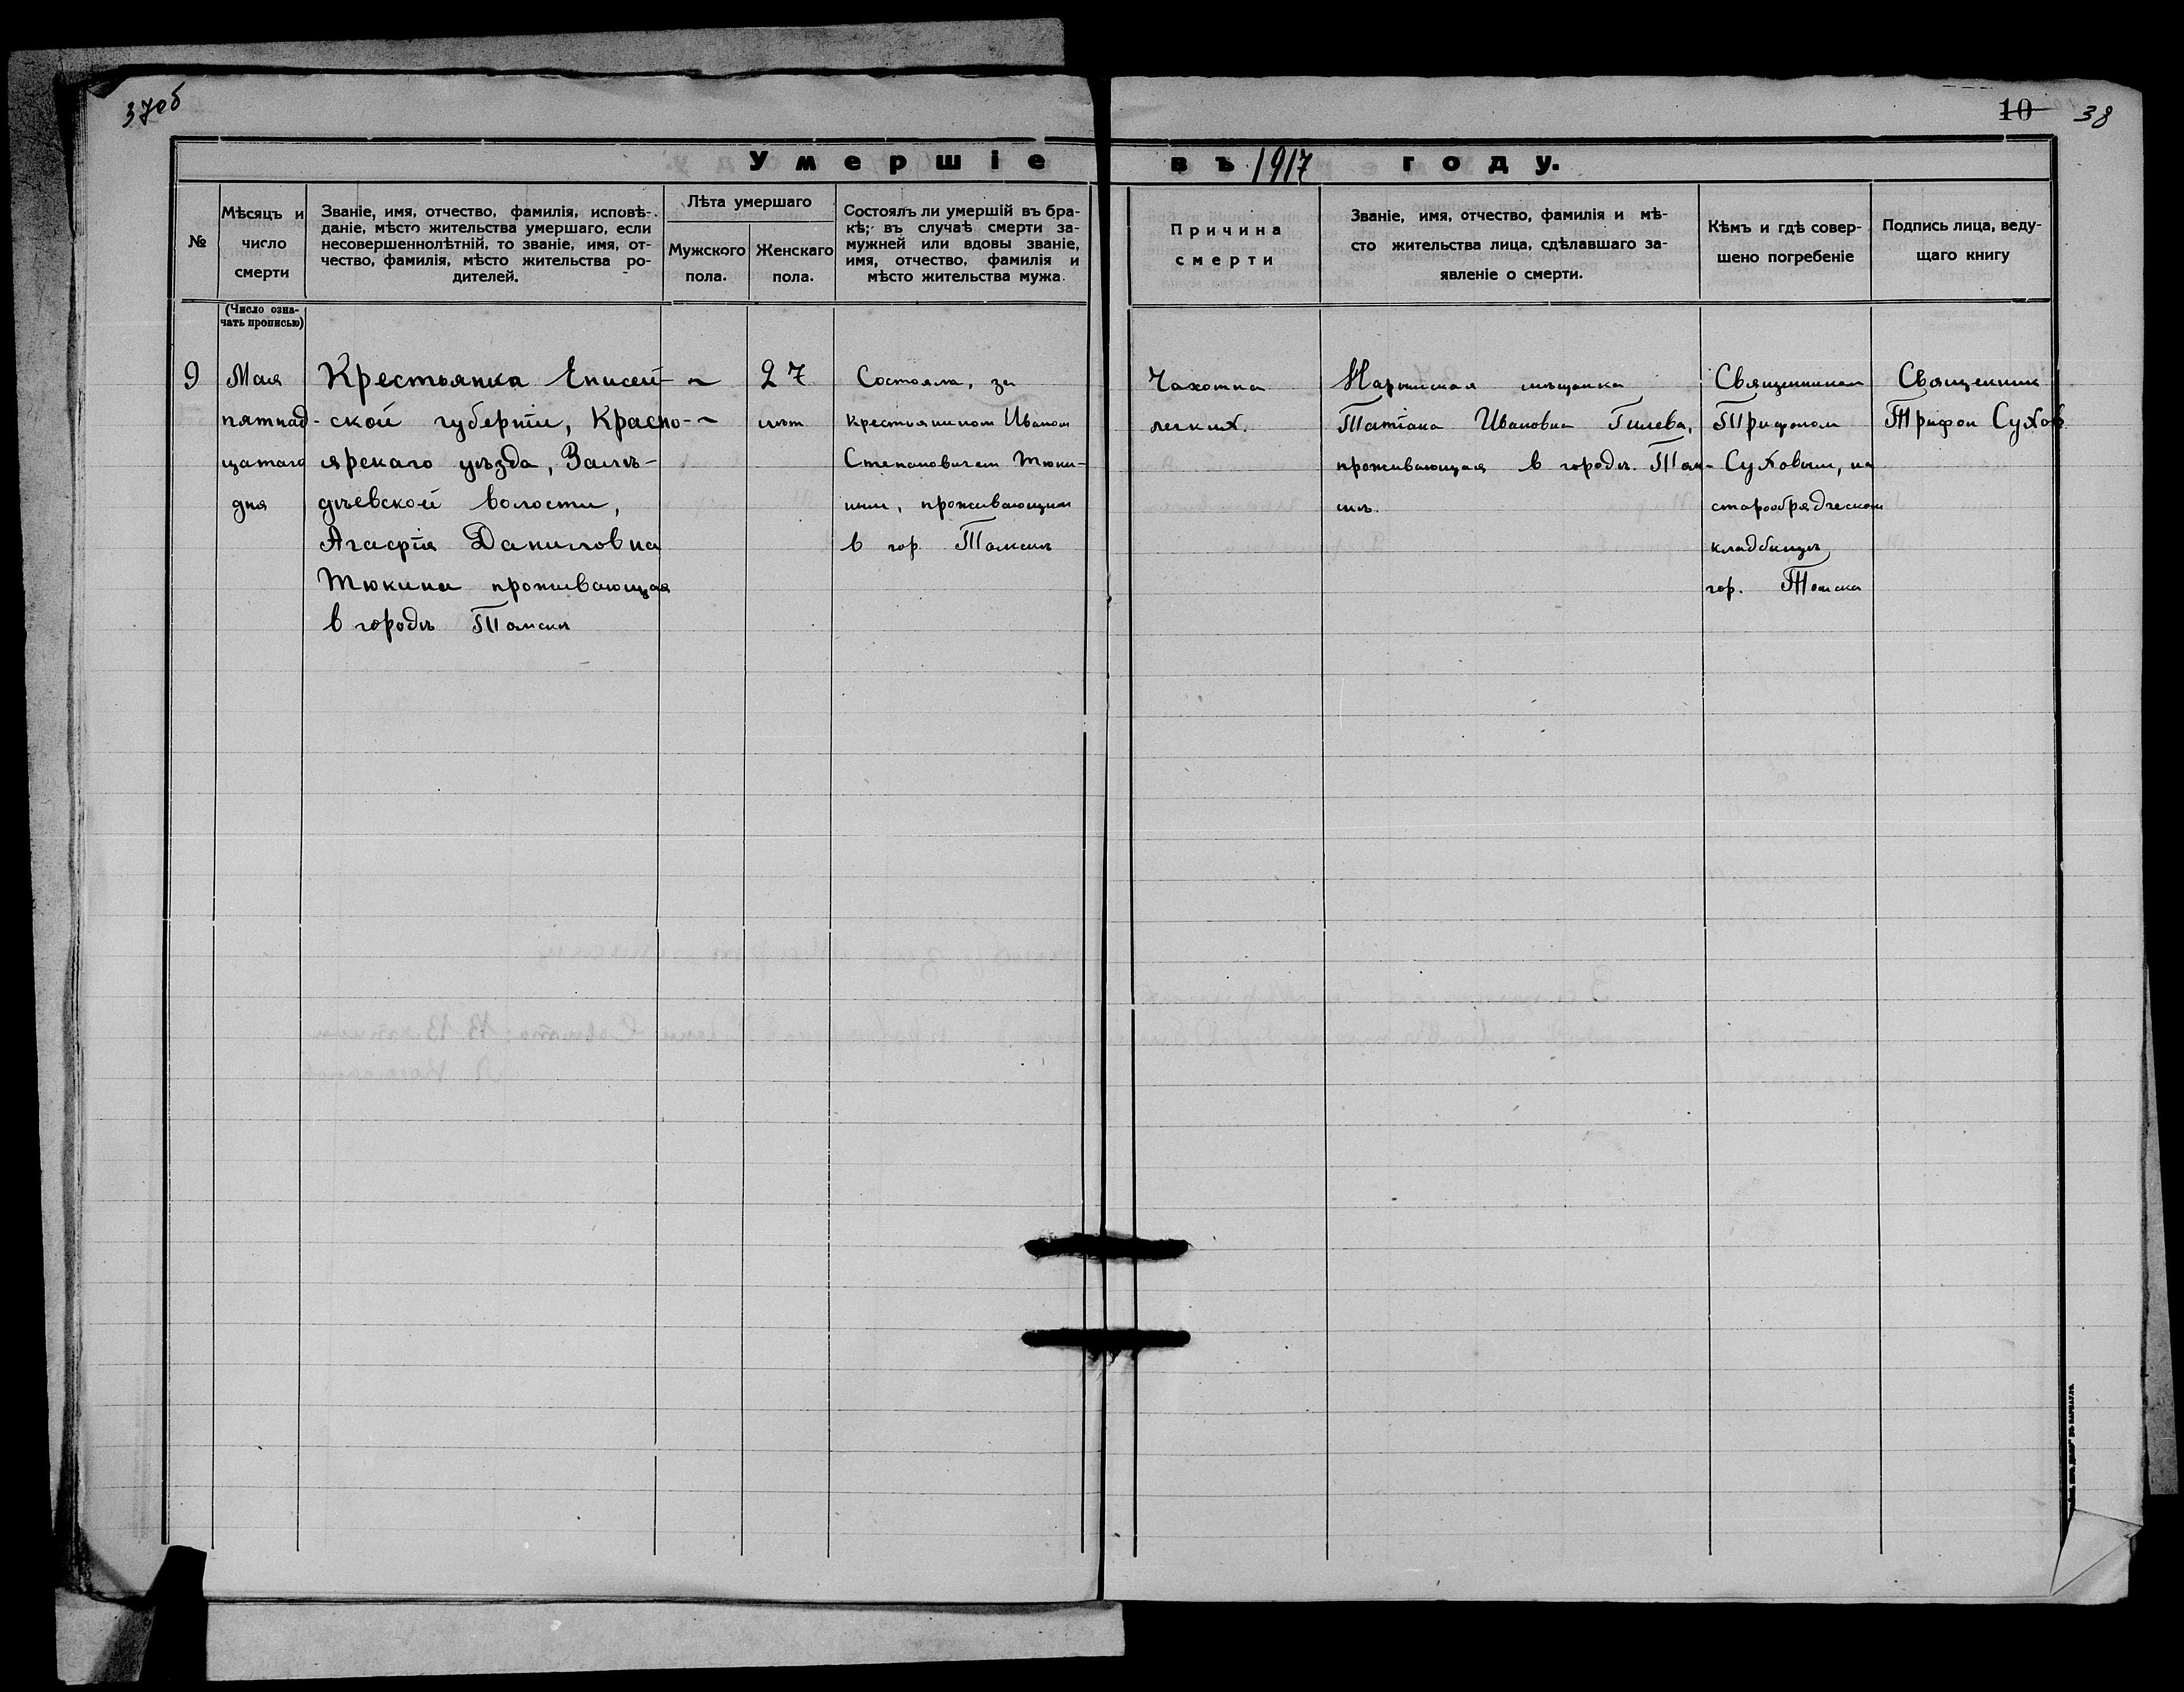 37об
10 38
Умершіе въ 1917 году.
№
Мѣсяцъ и
число
смерти
Званіе, имя, отчество, фамилія, исповѣ-
даніе, мѣсто жительства умершаго, если
несовершеннолѣтній, то званіе, имя, от-
чество, фамилія, мѣсто жительства ро-
дителей.
Лѣта умершаго
Мужского
пола.
Женскаго
пола.
Состоялъ ли умершій въ бра-
кѣ; въ случаѣ смерти за-
мужней или вдовы званіе,
имя, отчество, фамилія и
мѣсто жительства мужа.
Причина
смерти
Званіе, имя, отчество, фамилія и мѣ-
сто жительства лица, сдѣлавшаго за-
явленіе о смерти.
Кѣмъ и гдѣ совер-
шено погребеніе
Подпись лица, веду-
щаго книгу
(Число озна-
чать прописью)
9
Мая
пятнад-
цатаго
дня
Крестьянка Енисей-
ской губерніи, Красно-
ярскаго уѣзда, Залѣ-
дѣевской волости,
Агафія Даниловна
Тюкина проживающая
в городѣ Томскѣ
~
~
27
лѣт
Состояла, за
крестьянином Иваном
Степановичем Тюки-
ным, проживающим
в гор. Томскѣ
Чахотка
легких.
Нарымская мѣщанка
Татіана Ивановна Гилева,
проживающая в городѣ Том-
скѣ.
Священником
Трифоном
Суховым, на
старообрядческом
кладбищѣ,
гор. Томска
Священник
Трифон Сухов